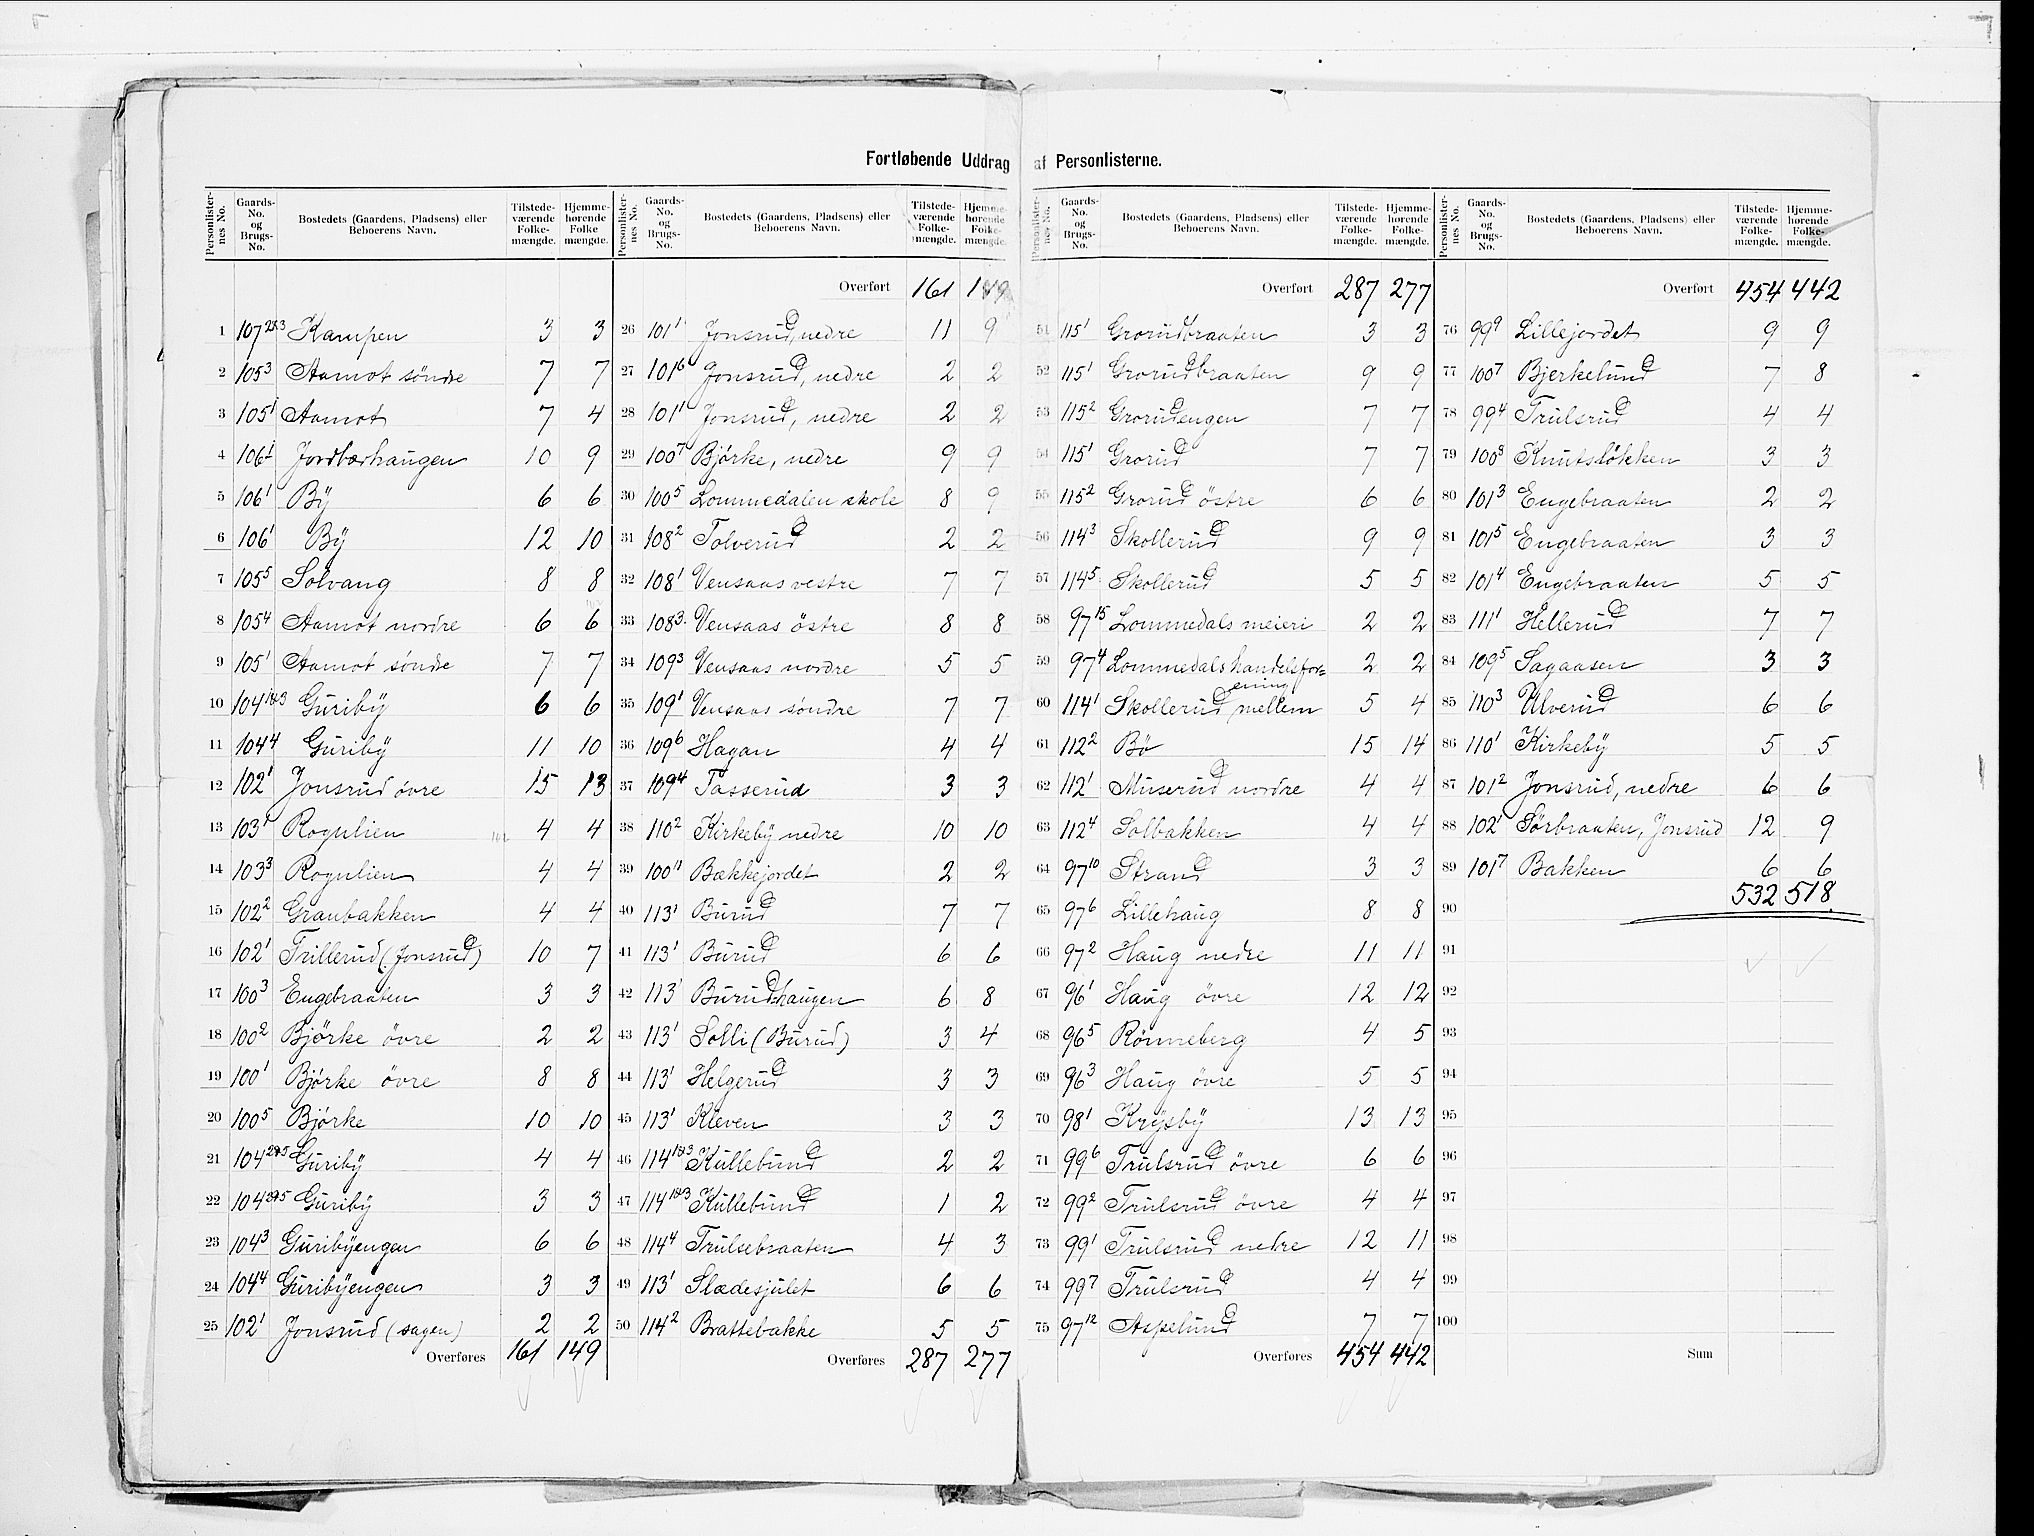 Fortløbende Uddrag af Personlisterne.
Personlisternes No. Gaards-No. og Brugs-No. Bostedets (Gaardens, Pladsens) eller Beboerens Navn. Tilstedeværende Folkemængde. Hjemmehørende Folkemængde.
1 107 2&3 Kampen 3 3
2 105³ Aamot söndre 7 7
3 105¹ Aamot 7 4
4 106¹ Jordbærhaugen 10 9
5 106¹ By 6 6
6 106¹ By 12 10
7 105⁵ Solvang 8 8
8 105⁴ Aamot nordre 6 6
9 105¹ Aamot söndre 7 7
10 104 1&3 Guriby 6 6
11 104⁴ Guriby 11 10
12 102¹ Jonsrud övre 15 13
13 103¹ Rogulien 4 4
14 103³ Rogulien 4 4
15 102² Granbakken 4 4
16 102¹ Trillerud (Jonsrud) 10 7
17 100³ Engebraaten 3 3
18 100² Bjørke övre 2 2
19 100¹ Bjørke övre 8 8
20 100⁵ Bjørke 10 10
21 104 2&5 Guriby 4 4
22 104 2&5 Guriby 3 3
23 104³ Guribyengen 6 6
24 104⁴ Guribyengen 3 3
25 102¹ Jonsrud (sagen) 2 2
Overføres 161 149
Personlisternes No. Gaards-No. og Brugs-No. Bostedets (Gaardens, Pladsens) eller Beboerens Navn. Tilstedeværende Folkemængde. Hjemmehørende Folkemængde.
Overført 161 149
26 101¹ Jonsrud, nedre 11 9
27 101⁶ Jonsrud, nedre 2 2
28 101¹ Jonsrud, nedre 2 2
29 100⁷ Bjørke, nedre 9 9
30 100⁵ Lommedalen skole 8 9
31 108² Tolverud 2 2
32 108¹ Vensaas vestre 7 7
33 108³ Vensaas östre 8 8
34 109³ Vensaas nordre 5 5
35 109¹ Vensaas söndre 7 7
36 109⁶ Hagan 4 4
37 109⁴ Tasserud 3 3
38 110² Kirkeby nedre 10 10
39 100¹¹ Bakkejordet 2 2
40 113¹ Burud 7 7
41 113¹ Burud 6 6
42 113¹ Burudhaugen 6 8
43 113¹ Solli (Burud) 3 4
44 113¹ Helgerud 3 3
45 113¹ Kleven 3 3
46 114 1&3 Kullebund 2 2
47 114 1&3 Kullebund 1 2
48 114⁴ Trulsebraaten 4 3
49 113¹ Slædesjulet 6 6
50 114² Brattebakke 5 5
Overføres 287 277
Personlisternes No. Gaards-No. og Brugs-No. Bostedets (Gaardens, Pladsens) eller Beboerens Navn. Tilstedeværende Folkemængde. Hjemmehørende Folkemængde.
Overført 287 277
51 115¹ Grorudbraaten 3 3
52 115¹ Grorudbraaten 9 9
53 115² Grorudengen 7 7
54 115¹ Grorud 7 7
55 115² Grorud östre 6 6
56 114³ Skollerud 9 9
57 114⁵ Skollerud 5 5
58 97¹⁵ Lommedals meieri 2 2
59 97⁴ Lommedals handelsforening 2 2
60 114¹ Skollerud mellem 5 4
61 112² Bö 15 14
62 112¹ Muserud nordre 4 4
63 112⁴ Solbakken 4 4
64 97¹⁰ Strand 3 3
65 97⁶ Lillehaug 8 8
66 97² Haug nedre 11 11
67 96¹ Haug övre 12 12
68 96⁵ Rönneberg 4 5
69 96³ Haug övre 5 5
70 98¹ Krysby 13 13
71 99⁶ Trulsrud övre 6 6
72 99² Trulsrud övre 4 4
73 99¹ Trulsrud nedre 12 11
74 99⁷ Trulsrud 4 4
75 97¹² Aspelund 7 7
Overføres 454 442
Personlisternes No. Gaards-No. og Brugs-No. Bostedets (Gaardens, Pladsens) eller Beboerens Navn. Tilstedeværende Folkemængde. Hjemmehørende Folkemængde.
Overført 454 442
76 99⁹ Lillejordet 9 9
77 100⁷ Bjerkelund 7 8
78 99⁴ Trulsrud 4 4
79 100⁸ Knutslökken 3 3
80 101³ Engebraaten 2 2
81 101⁵ Engebraaten 3 3
82 101⁴ Engebraaten 5 5
83 111¹ Hellerud 7 7
84 109⁵ Sagaasen 3 3
85 110³ Ulverud 6 6
86 110¹ Kirkeby 5 5
87 101² Jonsrud, nedre 6 6
88 102¹ Sörbraaten, Jonsrud 12 9
89 101⁷ Bakken 6 6
90 532 518
91
92
93
94
95
96
97
98
99
100
Sum